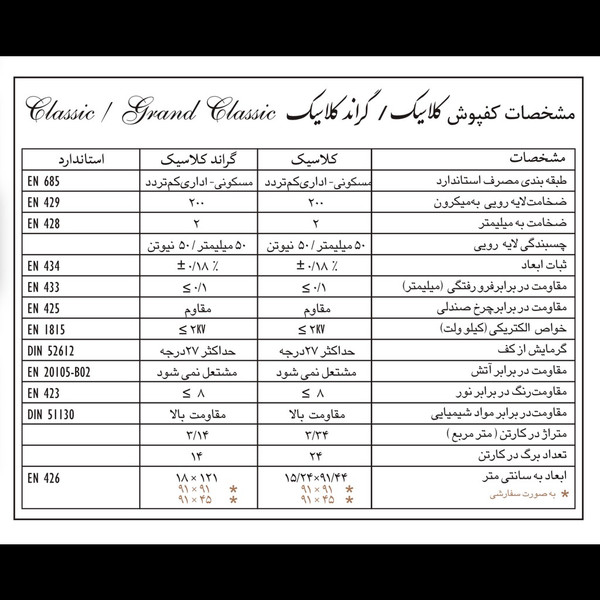 مشخصات کفپوش کلاسیک / گراند کلاسیک Classic / Grand Classic
مشخصات کلاسیک گراند کلاسیک استاندارد
طبقه بندی مصرف استاندارد مسکونی- اداری‌کم‌تردد مسکونی- اداری‌کم‌تردد EN 685
ضخامت‌لایه رویی به‌میکرون ۲۰۰ ۲۰۰ EN 429
ضخامت به میلیمتر ۲ ۲ EN 428
چسبندگی لایه رویی ۵۰ میلیمتر / ۵۰ نیوتن ۵۰ میلیمتر / ۵۰ نیوتن
ثبات ابعاد ± ۰/۱۸ ٪ ± ۰/۱۸ ٪ EN 434
مقاومت در برابرفرورفتگی (میلیمتر) ≤ ۰/۱ ≤ ۰/۱ EN 433
مقاومت در برابرچرخ صندلی مقاوم مقاوم EN 425
خواص الکتریکی (کیلو ولت) ≤ ۲KV ≤ ۲KV EN 1815
گرمایش از کف حداکثر ۲۷درجه حداکثر ۲۷درجه DIN 52612
مقاومت در برابر آتش مشتعل نمی شود مشتعل نمی شود EN 20105-B02
مقاومت‌رنگ در برابر نور ≤ ۸ ≤ ۸ EN 423
مقاومت‌در برابر مواد شیمیایی مقاومت بالا مقاومت بالا DIN 51130
متراژ در کارتن ( متر مربع ) ۳/۳۴ ۳/۱۴
تعداد برگ در کارتن ۲۴ ۱۴
ابعاد به سانتی متر ۱۵/۲۴×۹۱/۴۴ ۱۸ × ۱۲۱ EN 426
* به صورت سفارشی * ۹۱ × ۹۱ * ۹۱ × ۹۱
* ۹۱ × ۴۵ * ۹۱ × ۴۵